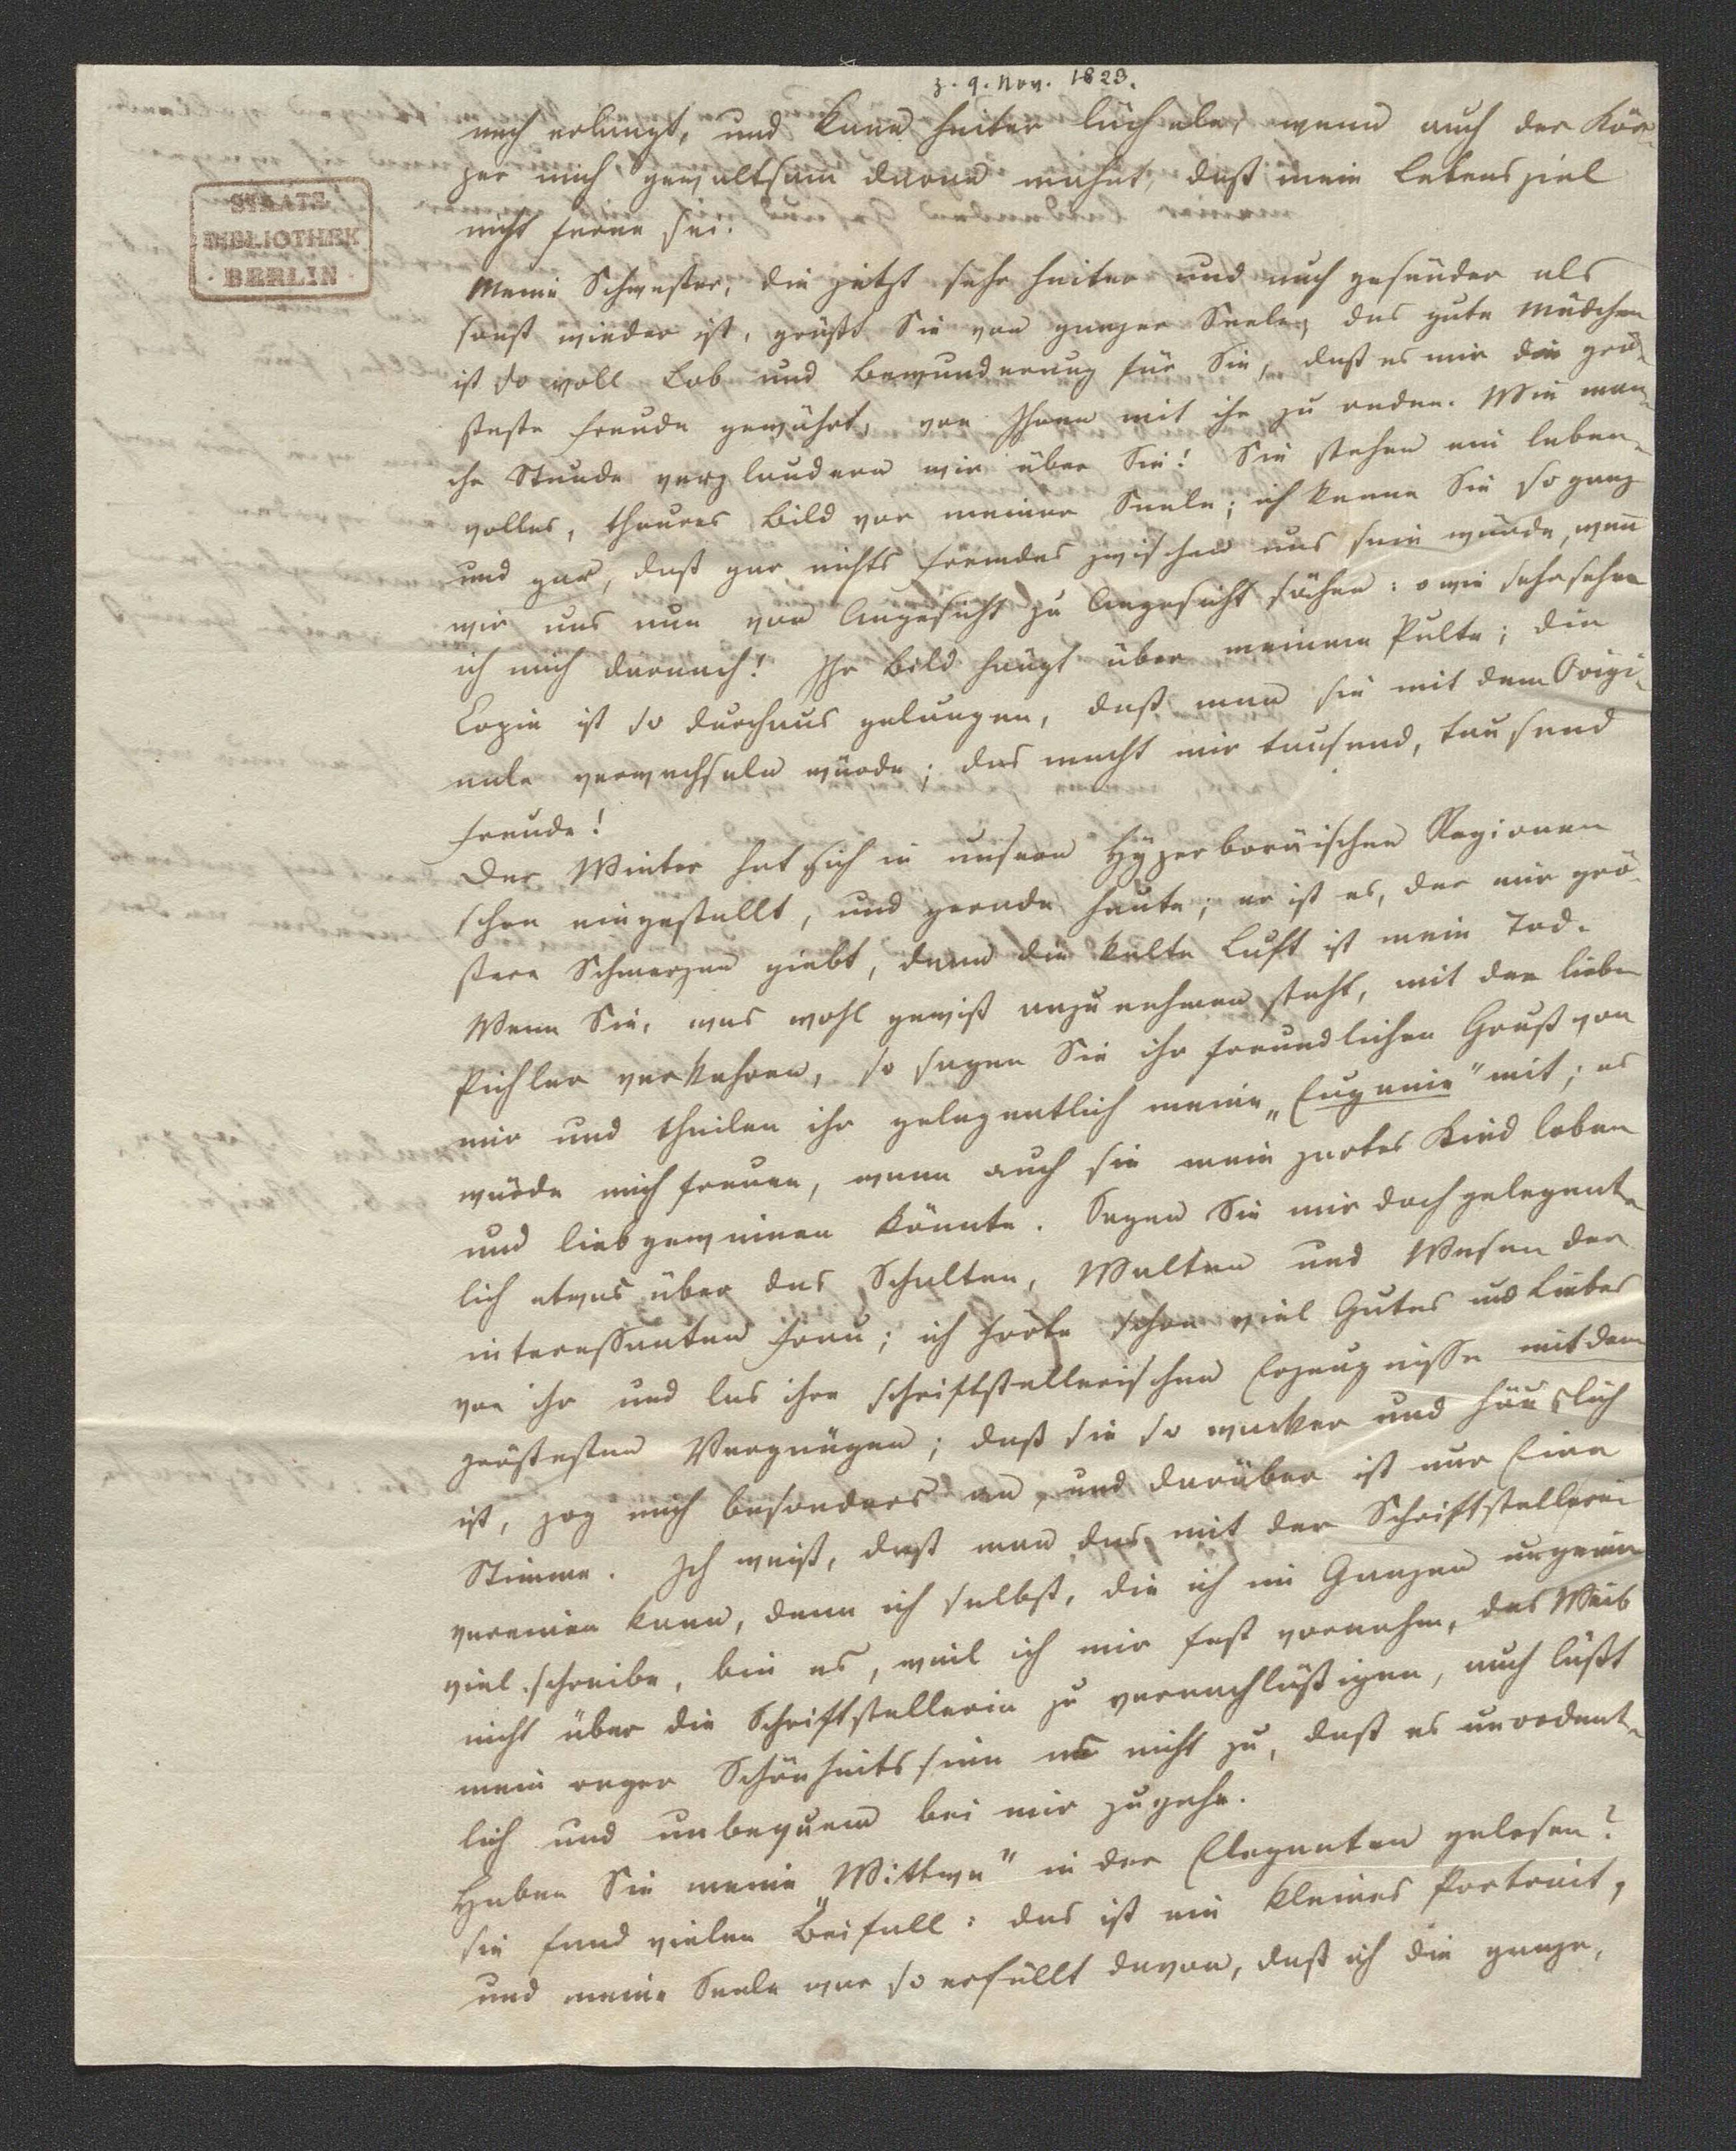 z. 9. Nov. 1823.
noch erlangt, und kann heiter lächeln, wenn auch der Kör-
per mich gewaltsam daran mahnt, daß mein Lebensziel
nicht ferne sei.
STAATS
BIBLIOTHEK
BERLIN
Meine Schwester, die jetzt sehr heiter und auch gesünder als
sonst wieder ist, grüßt Sie von ganzer Seele, das gute Mädchen
ist so voll Lob und Bewunderung für Sie, daß es mir die grö-
ßeste Freude gewährt, von Ihnen mit ihr zu reden. Wie man-
che Stunde verplaudern wir über Sie! Sie stehen ein leben-
volles, theures Bild vor meiner Seele; ich kenne Sie so ganz
und gar, daß gar nichts Fremdes zwischen uns sein würde, wenn
wir uns nun von Angesicht zu Angesicht sähen: o wie sehr sehne
ich mich darnach! Ihr Bild hängt über meinem Pulte; die
Copie ist so durchaus gelungen, daß man sie mit dem Origi-
nale verwechseln würde; das macht mir tausend, tausend
Freude!
Der Winter hat sich in unsern Hyperboräischen Regionen
schon eingestellt, und gerade heute; er ist es, der mir grö-
ßere Schmerzen giebt, denn die kalte Luft ist mein Tod.
Wenn Sie, was wohl gewiß anzunehmen steht, mit der lieben
Pichler verkehren, so sagen Sie ihr freundlichen Gruß von
mir und theilen ihr gelegentlich meine „Eugenie" mit; es
würde mich freuen, wenn auch sie mein zartes Kind loben
und liebgewinnen könnte. Sagen Sie mir doch gelegent-
lich etwas über das Schalten, Walten und Wesen der
interessanten Frau; ich hörte schon viel Gutes und Liebes
von ihr und las ihre schriftstellerischen Erzeugnisse mit dem
größesten Vergnügen; daß sie so wacker und häuslich
ist, zog mich besonders an, und darüber ist nur Eine
Stimme. Ich weiß, daß man das mit der Schriftstellerei
vereinen kann, denn ich selbst, die ich im Ganzen ungemein
viel schreibe, bin es, weil ich mir fest vornahm, das Weib
nicht über die Schriftstellerin zu vernachläßigen, auch läßt
mein reger Schönheitssinn es nicht zu, daß es unordent-
lich und unbequem bei mir zugehe.
Haben Sie meine „Wittwe" in der Eleganten gelesen?
sie fand vielen Beifall: das ist ein kleines Portrait,
und meine Seele war so erfüllt davon, daß ich die ganze,